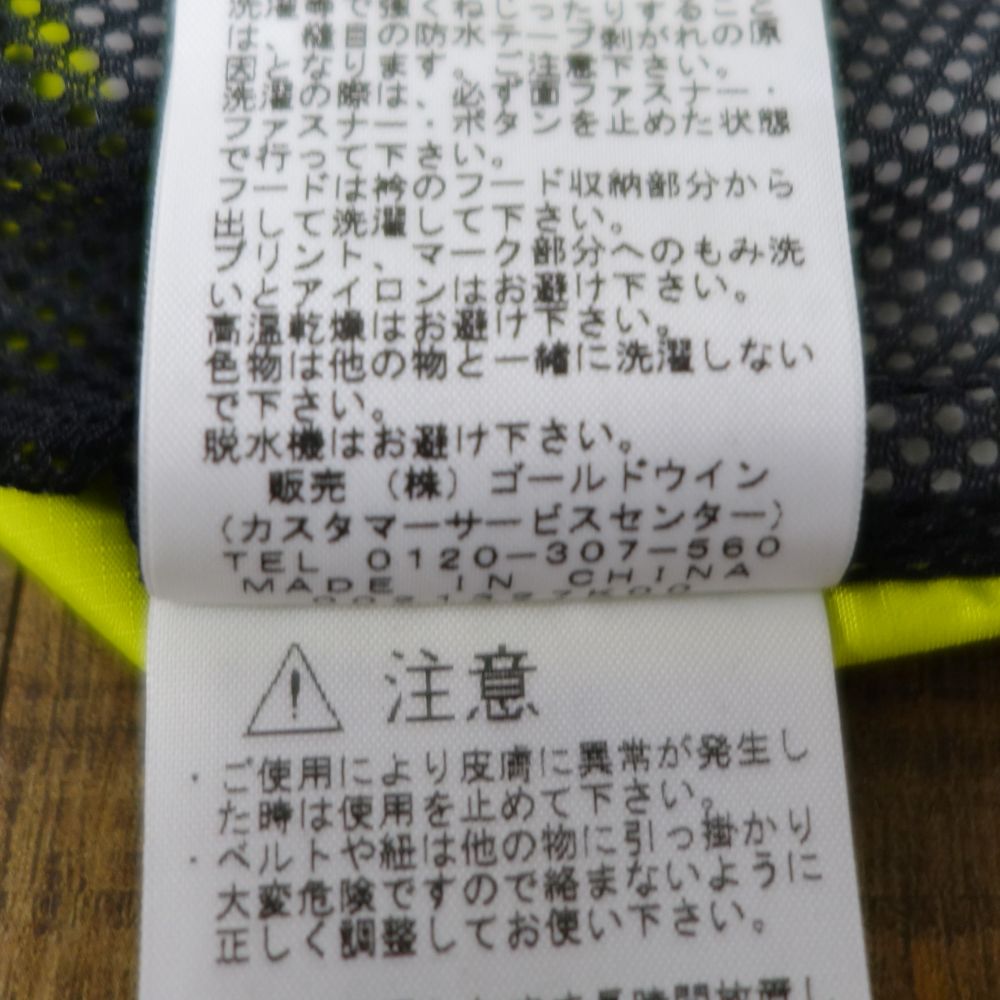 洗濯等で強くねじったりするこ
は、縫目の防水テープ剥がれの原
因となります。ご注意下さい。
洗濯の際は、必ず面ファスナー・
ファスナー・ボタンを止めた状態
で行って下さい。
フードは衿のフード収納部分から
出して洗濯して下さい。
プリント、マーク部分へのもみ洗
いとアイロンはお避け下さい。
高温乾燥はお避け下さい。
色物は他の物と一緒に洗濯しない
で下さい。
脱水機はお避け下さい。
販売 (株) ゴールドウイン
(カスタマーサービスセンター)
TEL 0120-307-560
MADE IN CHINA
注意
・ご使用により皮膚に異常が発生し
た時は使用を止めて下さい。
・ベルトや紐は他の物に引っ掛かり
大変危険ですので絡まないように
正しく調整してお使い下さい。
長時間放置し